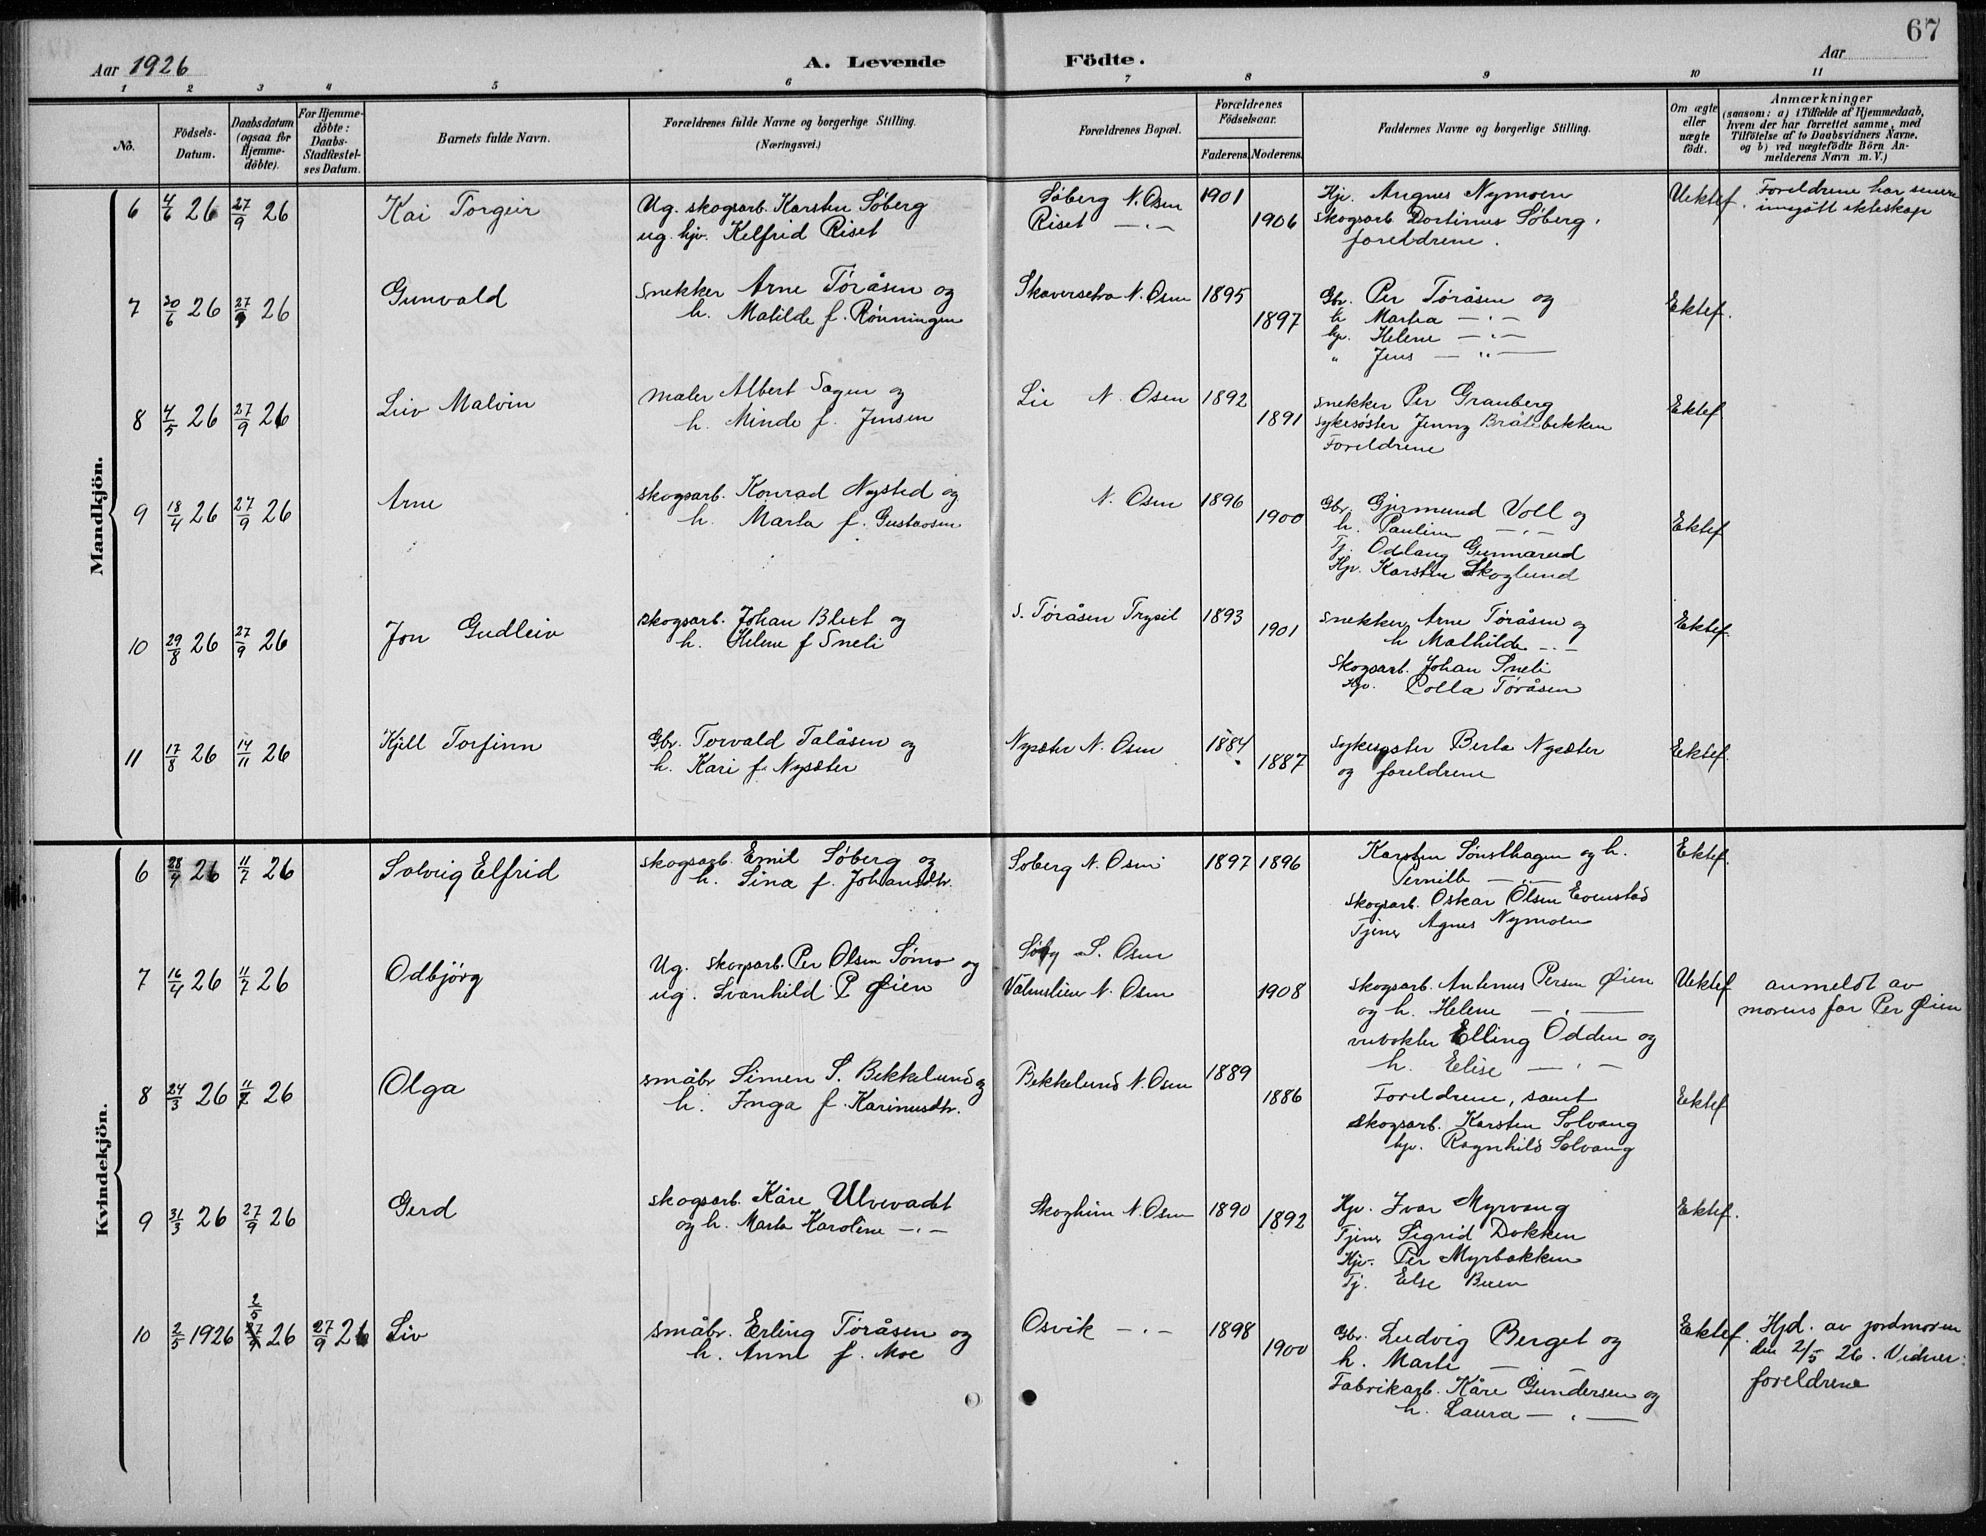 67
Aar 1926
A. Levende
Födte.
Aar
1 2 3 4 5 6 7 8 9 10 11
No.
Födsels-
Datum.
Daabsdatum
(ogsaa for
Hjemme-
döbte).
For Hjemme-
döbte:
Daabs-
Stadfæstel-
ses Datum.
Barnets fulde Navn.
Forældrenes fulde Navne og borgerlige Stilling.
(Næringsvei.)
Forældrenes Bopæl.
Forældrenes
Födselsaar.
Faderens. Moderens.
Faddernes Navne og borgerlige Stilling.
Om ægte
eller
uægte
födt.
Anmærkninger
(saasom: a) i Tilfælde af Hjemmedaab,
hvem der har forrettet samme, med
Tilföielse af to Daabsvidners Navne.
og b) ved uægtefödte Börn An-
melderens Navn m. V.)
Mandkjön.
6 4/6 26 27/9 26 Kai Torgeir
Ug. skogsarb. Karsten Søberg
ug. hjv. Kelfrid Riset
Søberg N. Osen
Riset —"—
1901
1906
Hjv. Angnes Nymoen
skogsarb. Dortinus Søberg.
foreldrene.
Uektef.
Foreldrene har senere
inngått ekteskap
7 20/6 26 27/9 26 Gunvald
snekker Arne Tøråsen og
h. Matilde f. Rønningen
Skaversetra N. Osen
1895
1897
Gbr. Per Tøråsen og
h Martea —"—
hjv. Helene —"—
" Jens —"—
Ektef.
8 4/5 26 27/9 26 Leiv Malvin
maler Albert Sagen og
h. Minda f. Jensen
Lie N. Osen
1892
1891
snekker Per Granberg
sykesøster Jenny Bråtebekken
Foreldrene
Ektef
9 18/4 26 27/9 26 Arne
skogsarb. Konrad Nysted og
h. Marta f. Gustavsen
N. Osen
1896
1900
Gbr. Gjermund Voll og
h. Pauline —"—
Tj. Odlaug Gunnarud
Hjv. Karsten Skoglund
Ektef
10 29/8 26 27/9 26 Jon Gudleiv
skogsarb. Johan Blext og
h. Helene f Sneli
S. Tøråsen Trysil
1893
1901
snekker Arne Tøråsen og
h Mathilde —"—
skogsarb. Johan Sneli
Hjv. Polla Tøråsen
Ektef.
11 17/8 26 14/11 26 Kjell Torfinn
Gbr. Torvald Talåsen og
h. Kari f. Nysæter
Nysæter N. Osen
1884
1887
sykesøster Berta Nysæter
og foreldrene
Eektef.
Kvindekjön.
6 28/4 26 11/7 26 Solveig Elfrid
skogsarb. Emil Søberg og
h. Sina f. Johansdtr.
Søberg N. Osen
1897 1896
Karsten Sønsthagen og h.
Pernille —"—
skogsarb. Oskar Olsen Evenstad
Tjener Agnes Nymoen
Ektef.
7 16/4 26 11/7 26 Odbjørg
Ug. skogsarb. Per Olsen og
ug. Svanhild P Øien
S. Osen
Valmslien N. Osen
1908
skogsarb. Antenus Persen Øien
og h. Helene —"—
Elling Odden og
h. Elise —"—
Uektef
anmeldt av
morens far Per Øien
8 24/3 26 11/7 26 Olga
småbr Simen S. Bekkelund og
h. Inga f. Karinusdtr.
Bekkelund N. Osen
1889
1886
Foreldrene, samt
skogsarb. Karsten Solvang
hjv. Ragnhild Solvang
Eektef
9 31/3 26 27/9 26 Gerd
skogsarb. Kåre Ulvevadet
og h. Marta Karoline —"—
Skogheim N. Osen
1890
1892
Hjv. Ivar Myrvang
Tjener Sigrid Dokken
Hjv. Per Myrbakken
Tj. Else Buen
Ektef.
10 2/5 1926 2/5 27/9 26 27/9 26 Liv
småbr. Erling Tøråsen og
h. Anne f. Moe
Osvik —"—
1898
1900
Gbr. Ludvig Berget og
h. Marte —"—
Fabrikarb. Kåre Gundersen og
h. Laura —"—
Ektef.
Hjd. av jordmoren
den 2/5 26. Vidner:
foreldrene